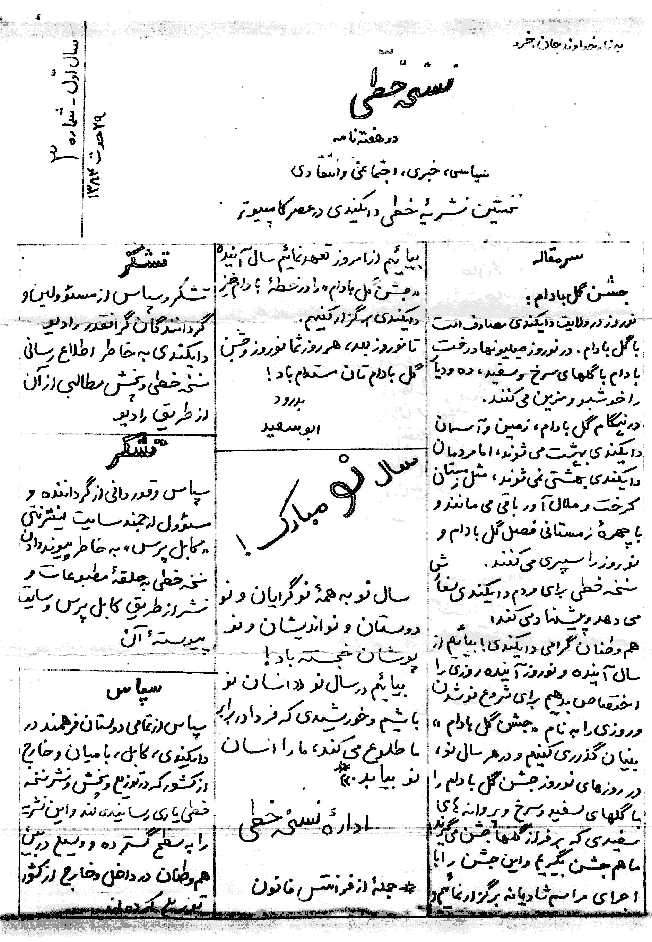 به نام خداوند جان و خرد
سال اول - شماره ۳
۲۹ حوت ۱۳۸۳
نسخهٔ خطی
دو هفته نامه
سیاسی، خبری، اجتماعی و انتقادی
نخستین نشریهٔ خطی دایکندی در عصر کامپیوتر
سرمقاله
جشن گل بادام:
نوروز در ولایت دایکندی مصادف است
با گل بادام. در نوروز میلیونها درخت
بادام با گلهای سرخ و سفید، ده و دیار
را خوشبو و مزین می کنند.
در هنگام گل بادام، زمین و آسمان
دایکندی بهشت می شوند، اما مردمان
دایکندی بهشتی نمی شوند، مثل زمستان
کرخت و ملال آور باقی می مانند و
با چهرهٔ زمستانی فصل گل بادام و
نوروز را سپری می کنند.
نسخه خطی برای مردم دایکندی
می دهد و پیشنهاد می کند:
هموطنان گرامی دایکندی! بیائیم از
سال آینده و نوروز آینده روزی را
اختصاص بدهیم برای شروع نو شدن
و روزی را به نام «جشن گل بادام»
بنیان گذاری کنیم و در هر سال نو،
در روزهای نوروز جشن گل بادام را
با گلهای سفید و سرخ و پروانه های
سفیدی که بر فراز گلها جشن می گیرند
ما هم جشن بگیریم و این جشن را با
اجرای مراسم شادیانه برگزار نمائیم و
بیائیم از امروز تعهد نمائیم سال آینده
«جشن گل بادام» را در خطهٔ بادام خیز
دایکندی برگزار کنیم.
تا نوروز بعد، هر روز شما نوروز و جشن
گل بادام تان مستدام باد!
بدرود
ابو سعید
سال نو مبارک!
سال نو به همهٔ نوگرایان و نو
دوستان و نواندیشان و نو
پوشان خجسته باد!
بیائیم در سال نو «انسان نو
باشیم و خورشیدی که فردا، برابر
ما طلوع می کند، ما را انسان
نو بیابد.»*
ادارهٔ نسخهٔ خطی
* جمله از فرانتس فانون
تشکر
تشکر و سپاس از مسئولین و
گردانندگان گرانقدر رادیو
دایکندی به خاطر اطلاع رسانی
نسخه خطی و پخش مطالبی از آن
از طریق رادیو
تشکر
سپاس و قدردانی از گرداننده و
مسئول ارجمند سایت اینترنتی
«کابل پرس»، به خاطر پیوند دادن
نسخه خطی به حلقهٔ مطبوعات و
نشر از طریق کابل پرس و سایت
پیوستهٔ آن
سپاس
سپاس از تمامی دوستان فرهمند در
دایکندی، کابل، بامیان و خارج
از کشور که در توزیع و پخش و نشر نسخه
خطی یاری رسانیدند و این نشریه
را به سطح گسترده و وسیع در بین
هموطنان در داخل و خارج از کشور
توزیع کرده اند.